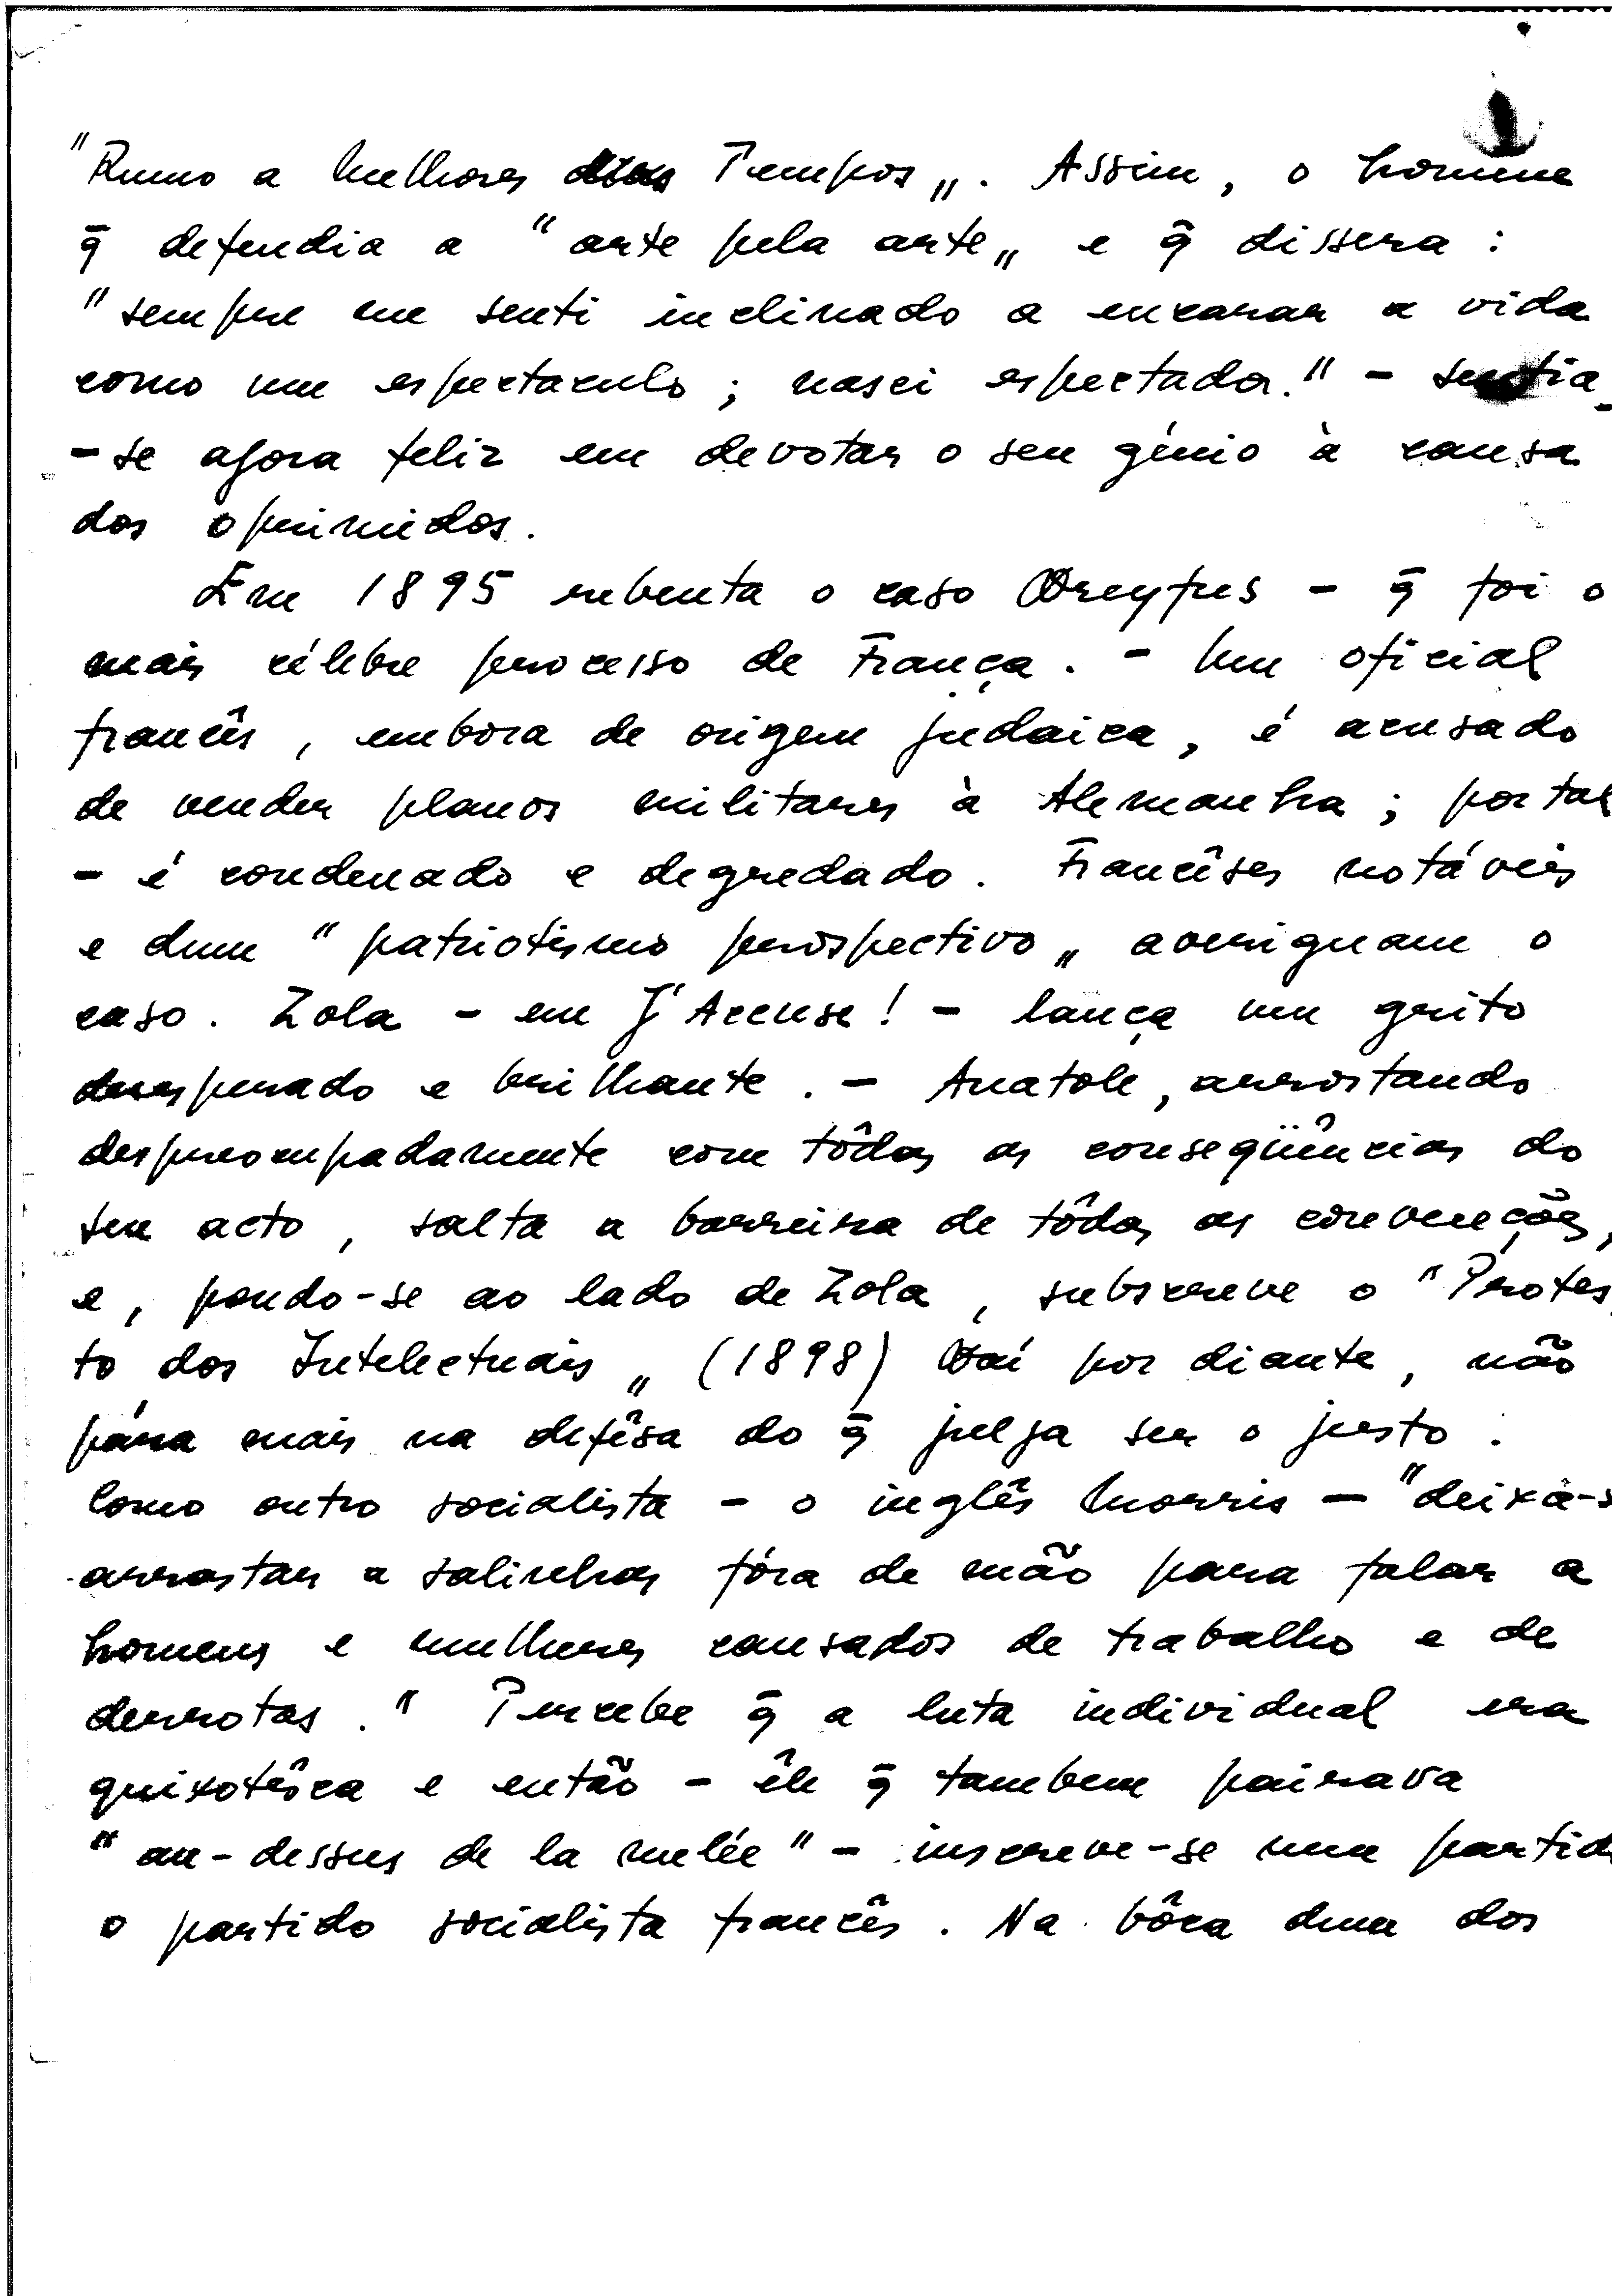 "Rumo a Melhores Tempos„. Assim, o homem
q̄ defendia a "arte pela arte„ e q̄ dissera:
"sempre me senti inclinado a encarar a vida
como um espectaculo; nasci espectador." - sentia-
-se agora feliz em devotar o seu génio à causa
dos oprimidos.
Em 1895 rebenta o caso Dreyfus - q̄ foi o
mais célebre processo de França. - Um oficial
francês, embora de origem judaica, é acusado
de vender planos militares à Alemanha; por tal
- é condenado e degredado. Francêses notáveis
e dum "patriotismo prospectivo„ averiguam o
caso. Zola - em J'Accuse! - lança um grito
desesperado e brilhante. - Anatole, arrostando
despreocupadamente com tôdas as conseqüências do
seu acto, salta a barreira de tôdas as convenções,
e, pondo-se ao lado de Zola, subscreve o "Protes-
to dos Intelectuais„ (1898) Daí por diante, não
pára mais na defêsa do q̄ julga ser o justo.
Como outro socialista - o inglês Morris - "deixa-s
arrastar a salinhas fóra de mão para falar a
homens e mulheres cansados de trabalho e de
derrotas." Percebe q̄ a luta individual era
quixotêsca e então - êle q̄ tambem pairava
"au-dessus de la melée" - inscreve-se num partido
o partido socialista francês. Na bôca dum dos